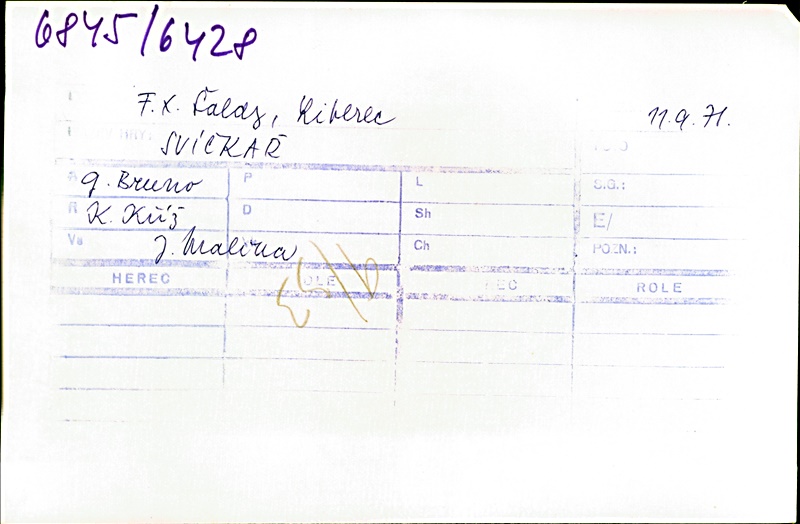 6845/6428
F. X. Šalda, Liberec 11.9.71.
SVÍČKAŘ
G. Bruno P L S.G.:
R K. Kříž D Sh E/
Vs J. Malina Ch POZN.:
HEREC ROLE HEREC ROLE